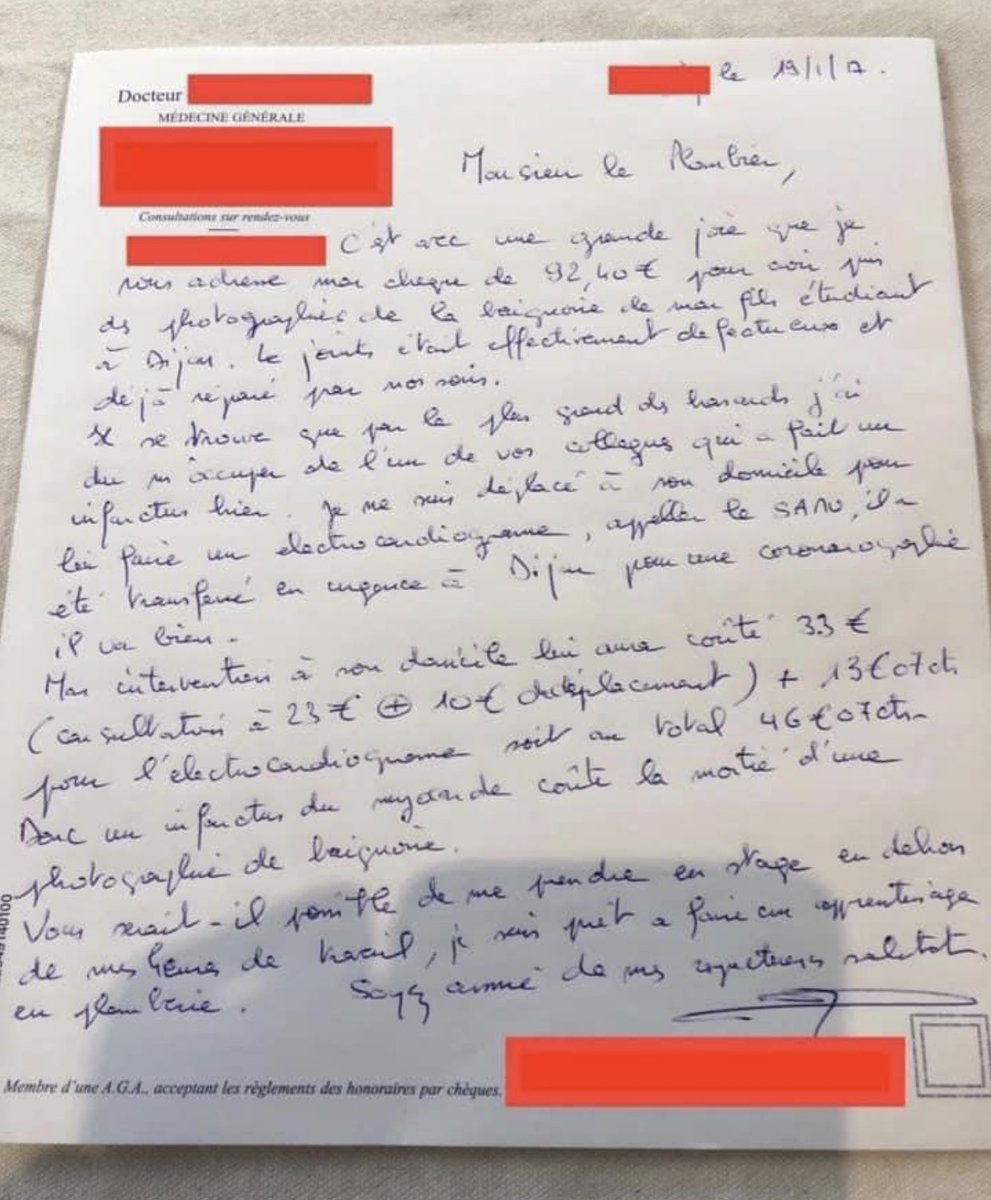 Docteur
MÉDECINE GÉNÉRALE
Consultations sur rendez-vous
le 19/1/17.
Monsieur le Plombier,
C'est avec une grande joie que je
vous adresse mon cheque de 92,40€ pour avoir pris
ds photographies de la baignoire de mon fils étudiant
à Dijon. Le joints était effectivement defectueux et
déjà réparé par nos soins.
Il se trouve que par le plus grand ds hasards j'ai
du m'occuper de l'un de vos collegues qui a fait un
infarctus hier. Je me suis déplacé à son domicile pour
lui faire un electrocardiograme, appeller le SAMU, il a
été transferé en urgence à Dijon pour une coronarographie
il va bien.
Mon intervention à son domicile lui aura coûté 33 €
(consultation à 23 € + 10 € de déplacement) + 13€07cts
pour l'electrocardiograme soit au total 46€07cts
Donc un infarctus du myocarde coûte la moitié d'une
photographie de baignoire.
Vous serait-il possible de me prendre en stage en dehors
de mes heures de travail, je suis prêt a faire un apprentissage
en plomberie. Soyez assuré de mes respectueuses salutat.
Membre d'une A.G.A., acceptant les règlements des honoraires par chèques.